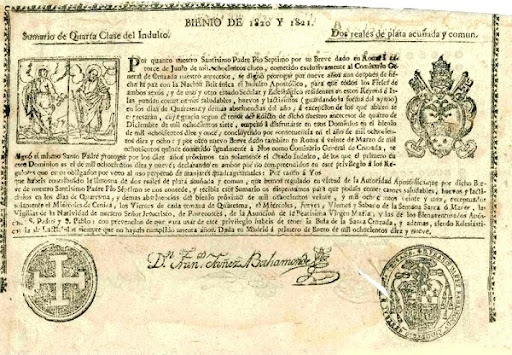 BIENIO DE 1820 Y 1821.
Sumario de Quarta Clase del Indulto. Dos reales de plata acuñada y comun.
Por quanto nuestro Santisimo Padre Pio Septimo por su Breve dado en Roma á ca-
torce de Junio de mil ochocientos cinco, cometido exclusivamente al Comisario Ge-
neral de Cruzada nuestro antecesor, se dignó prorogar por nueve años despues de
hecha la paz con la Nacion Británica el Indulto, para que todos los Fieles de
ambos sexos, y de uno y otro estado Secular y Eclesiástico residentes en estos Reynos é Is-
las puedan comer carnes saludables, huevos y lacticinios (guardando la forma del ayuno)
en los dias de Quaresma y demas abstinencias del año, á excepcion de los que abaxo se
expresarán, cuya gracia segun el tenor del Edicto de dicho nuestro antecesor de quatro
de Diciembre de mil ochocientos siete, empezó á disfrutarse en estos Dominios en el bienio
de mil ochocientos diez y once, concluyendo por consecuencia en el año de mil ochocien-
tos diez y ocho; y por otro nuevo Breve dado tambien en Roma á veinte de Marzo de mil
ochocientos quince cometido igualmente á Nos como Comisario General de Cruzada, se
dignó el mismo Santo Padre prorogar por los diez años próximos tan solamente el citado Indulto, de los que el primero en
estos Dominios es el de mil ochocientos diez y nueve; declarando en ambos por no comprehendidos en este privilegio á los Re-
gulares que estan obligados por voto al uso perpetuo de manjares quadragesimales. Por tanto á Vos
que habeis contribuido la limosna de dos reales de plata acuñada y comun, que hemos regulado en virtud de la Autoridad Apostólica, que por dicho Bre-
ve de nuestro Santisimo Padre Pio Séptimo se nos concede, y recibis este Sumario os dispensamos para que podais comer carnes saludables, huevos y lacticin-
ios en los dias de Quaresma, y demas abstinencias del bienio próximo de mil ochocientos veinte, y mil ochocientos veinte y uno, exceptuando
solamente el Miércoles de Ceniza, los Viernes de cada semana de Quaresma, el Miércoles, Jueves, Viernes y Sábado de la Semana Santa ó Mayor, las
Vigilias de la Natividad de nuestro Señor Jesucristo, de Pentecostes, de la Asuncion de la Beatisima Virgen Maria, y de los Bienaventurados Após-
toles S. Pedro y S. Pablo: con prevencion de que para usar de este privilegio habeis de tener la Bula de la Santa Cruzada, y ademas, siendo Eclesiásti-
co la de Lacticinios siempre que no hayais cumplido sesenta años. Dada en Madrid á primero de Enero de mil ochocientos diez y nueve.
Dn. Franco. Yañez Bahamonde